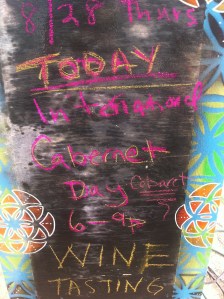 8/28 Thurs
TODAY
International
Cabernet
Day Cabaret
6-9P ?
WINE
TASTING